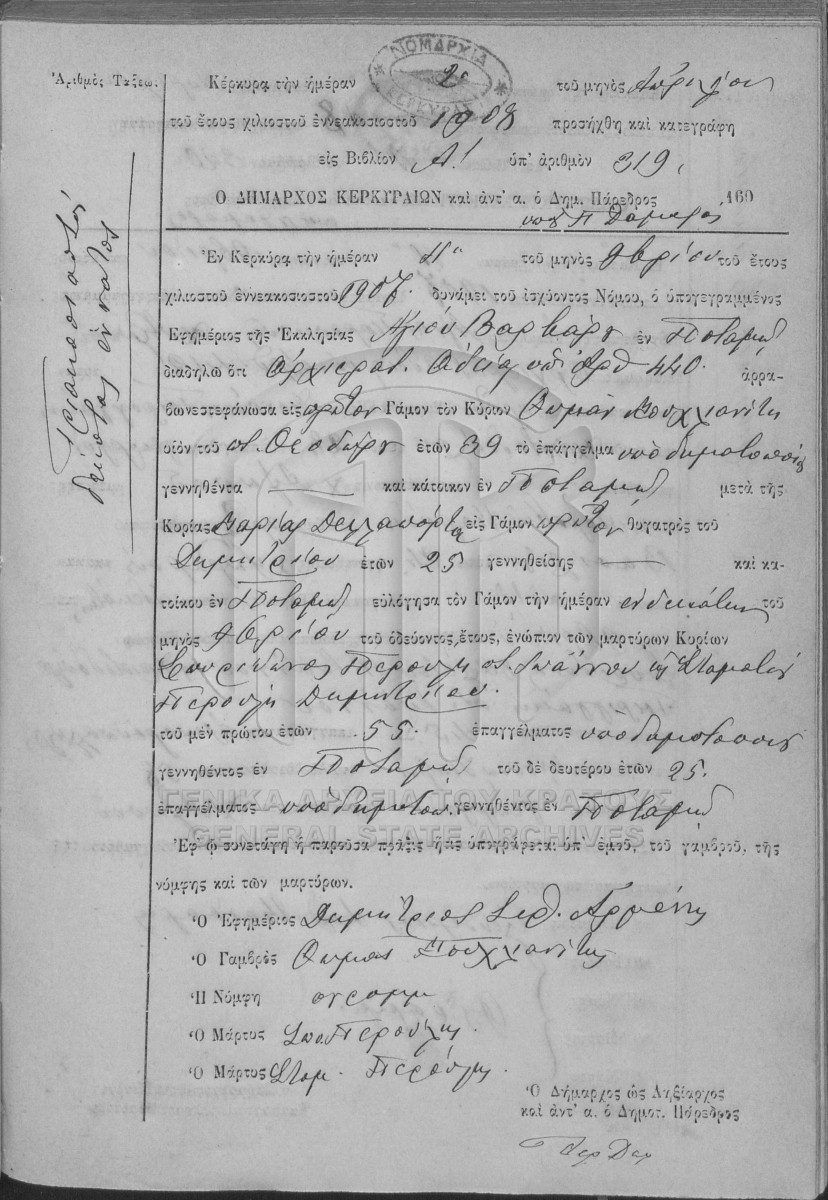 ΝΟΜΑΡΧΙΑ
ΚΕΡΚΥΡΑΣ
Ἀριθμὸς Τάξεω.
Κέρκυρα τὴν ἡμέραν 2α τοῦ μηνὸς Ἀπριλίου
τοῦ ἔτους χιλιοστοῦ ἐννεακοσιοστοῦ 1908 προσήχθη καὶ κατεγράφη
εἰς Βιβλίον Α! ὑπ' ἀριθμὸν 319,
Ὁ ΔΗΜΑΡΧΟΣ ΚΕΡΚΥΡΑΙΩΝ καὶ ἀντ' α. ὁ Δημ. Πάρεδρος 160
Τριακοσιοστός
δέκατος ἔννατος
Ἐν Κερκύρᾳ τὴν ἡμέραν 11η τοῦ μηνὸς 9βρίου τοῦ ἔτους
χιλιοστοῦ ἐννεακοσιοστοῦ 1907. δυνάμει τοῦ ἰσχύοντος Νόμου, ὁ ὑπογεγραμμένος
Ἐφημέριος τῆς Ἐκκλησίας Ἁγίου Βαρβάρου ἐν Ποταμῷ
διαδηλῶ ὅτι Ἀρχιερατ. Ἀδείᾳ ὑπ' Ἀρθ 440. ἀρρα-
βωνεστεφάνωσα εἰς πρῶτον Γάμον τὸν Κύριον Θωμᾶν
υἱὸν τοῦ π. Θεοδώρου ἐτῶν 39 τὸ ἐπάγγελμα ὑποδηματοποιὸν
γεννηθέντα — καὶ κάτοικον ἐν Ποταμῷ μετὰ τῆς
Κυρίας Μαρίας Δελλαπόρτα εἰς Γάμον πρῶτον θυγατρὸς τοῦ
Δημητρίου ἐτῶν 25 γεννηθείσης — καὶ κα-
τοίκου ἐν Ποταμῷ εὐλόγησα τὸν Γάμον τὴν ἡμέραν ἑνδεκάτην τοῦ
μηνὸς 9βρίου τοῦ ὁδεύοντος ἔτους, ἐνώπιον τῶν μαρτύρων Κυρίων
Σπυρίδωνος Περούλη π. Ἰωάννου κ Σταματίου
Περούλη Δημητρίου.
τοῦ μὲν πρώτου ἐτῶν 55. ἐπαγγέλματος ὑποδηματοποιοῦ
γεννηθέντος ἐν Ποταμῷ τοῦ δὲ δευτέρου ἐτῶν 25.
ἐπαγγέλματος ὑποδηματοπ. γεννηθέντος ἐν Ποταμῷ
ΓΕΝΙΚΑ ΑΡΧΕΙΑ ΤΟΥ ΚΡΑΤΟΥΣ
GENERAL STATE ARCHIVES
Ἐφ' ᾧ συνετάγη ἡ παροῦσα πρᾶξις ἥτις ὑπογράφεται ὑπ' ἐμοῦ, τοῦ γαμβροῦ, τῆς
νύμφης καὶ τῶν μαρτύρων.
Ὁ Ἐφημέριος Δημήτριος
Ὁ Γαμβρὸς Θωμᾶς
Ἡ Νύμφη ἀγράμμ
Ὁ Μάρτυς Σπυ Περούλης.
Ὁ Μάρτυς Σταμ. Περούλης.
Ὁ Δήμαρχος ὡς Ληξίαρχος
καὶ ἀντ' α. ὁ Δημοτ. Πάρεδρος